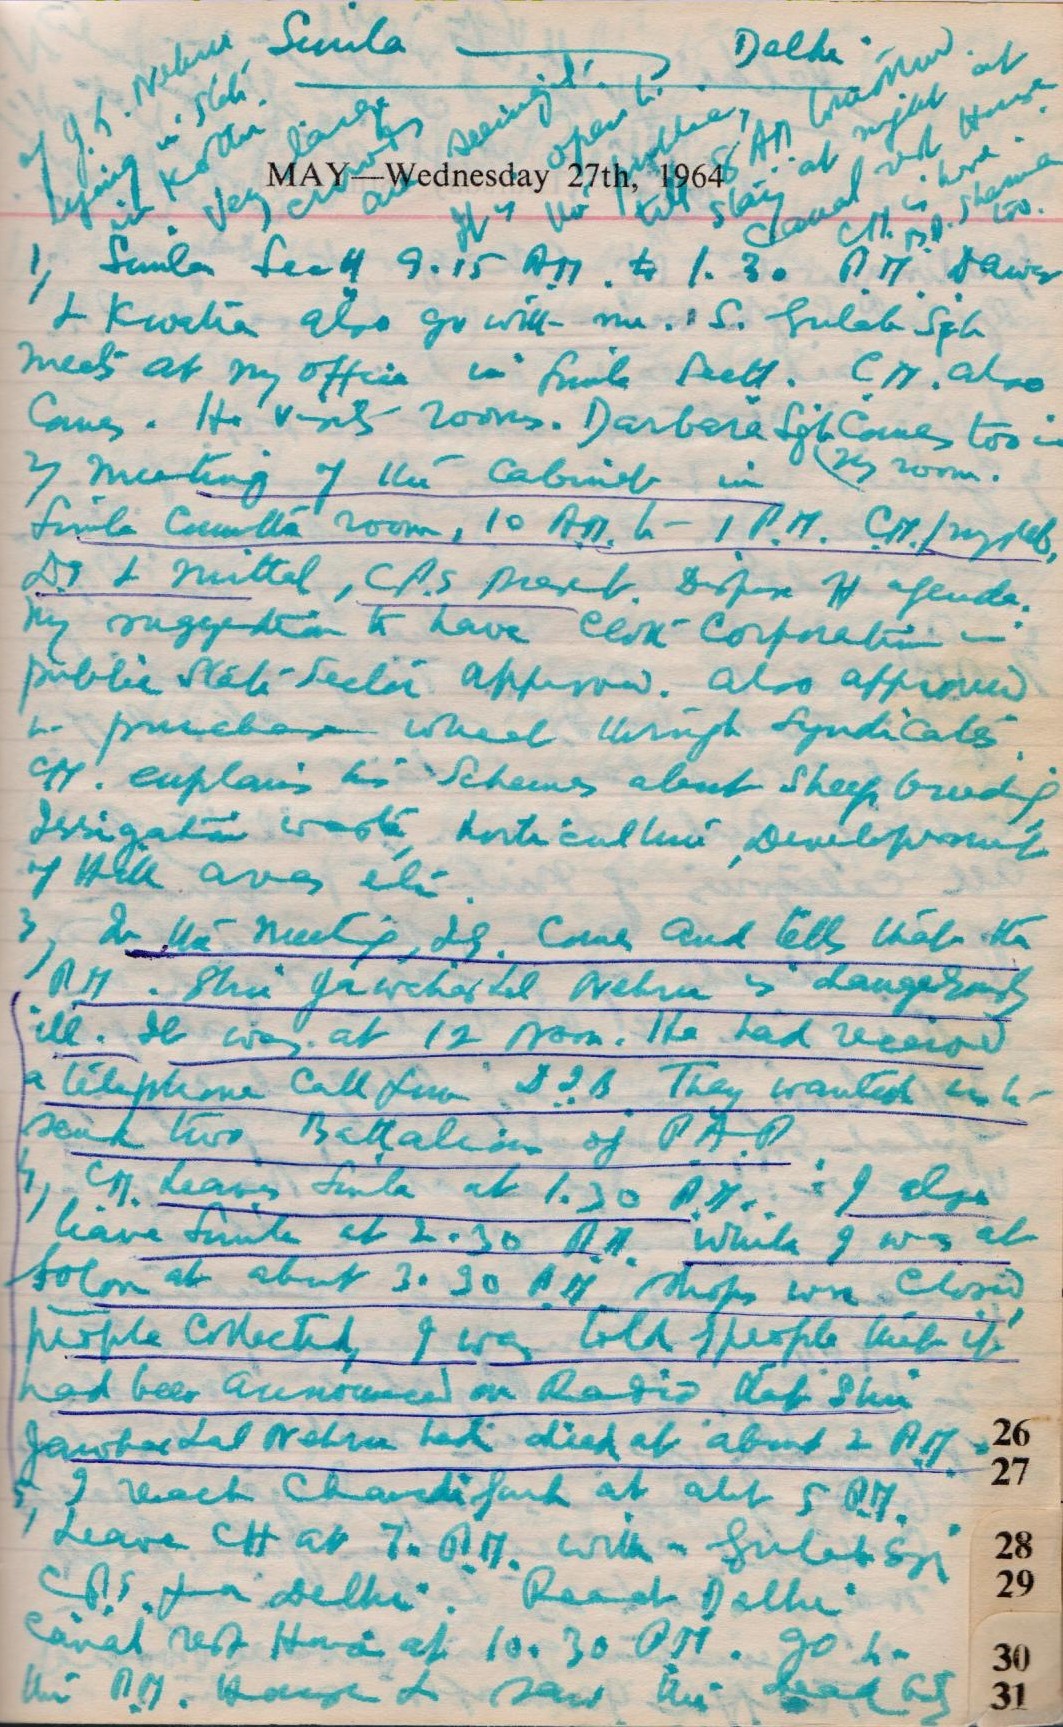 Simla Delhi
MAY—Wednesday 27th, 1964
1, Simla Sectt 9.15 A.M. to 1.30 P.M. Dawer
& Kwatra also go with me. S. Gulab Sgh
meets at my office in Simla Sectt. C.M. also
Comes. He visits rooms. Darbara Sgh Comes too in
my room.
2, Meeting of the Cabinet in
Simla Committee room, 10 A.M. to 1 P.M. C.M.
& Mittal, CPS present. Dispose of agenda.
My suggestion to have Corporation in
public State Sector approved. Also approved
to purchase wheat through Syndicates.
CM. explains his Schemes about Sheep breeding,
Irrigation works, horticulture, Development
of Hill areas etc.
3, In the Meeting, I.G. Comes and tells that the
P.M. Shri Jawaharlal Nehru is dangerously
ill. It was at 12 Noon. He had received
a telephone Call from D I B They wanted us to
send two Battalions of P.A.P
4, CM. Leaves Simla at 1.30 P.M. I also
leave Simla at 2.30 P.M. While I was at
Solon at about 3.30 P.M. shops were Closed,
people Collected, I was told people that it
had been announced on Radio that Shri
Jawahar Lal Nehru had died at about 2 P.M.
5, I reach Chandigarh at abt 5 P.M.
Leave CH at 7. P.M. with Gulab Sgh
C.P.S. for Delhi. Reach Delhi
Canal rest House at 10.30 P.M. go to
the P.M. House & saw the dead body
of J.L. Nehru
lying in State
in Kothi
Very large
crowds
are seeing it.
It is open to
public,
till 5 AM tomorrow.
stay at night at
Canal rest House
CM. is here.
Sharma too.
26
27
28
29
30
31